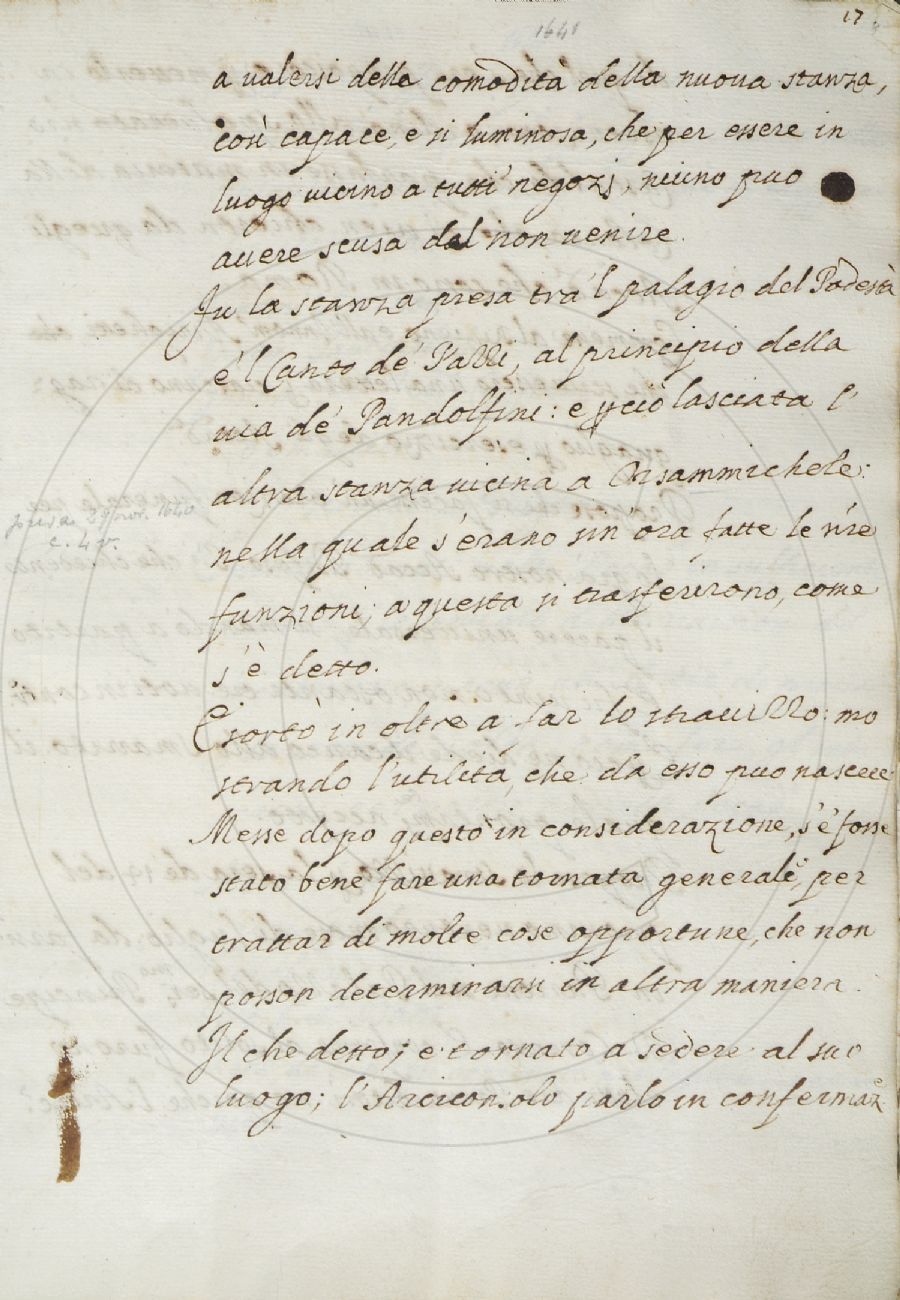 17
1641
a valersi della comodità della nuova stanza,
così capace, e sì luminosa, che per essere in
luogo vicino a tutti negozj, niuno può
avere scusa del non venire.
Fu la stanza presa tra 'l palagio del Podestà
e 'l Canto de' Pazzi, al principio della
via de' Pandolfini: e p ciò lasciata l'
altra stanza vicina a Orsammichele:
nella quale s'erano sin'ora fatte le n're
funzioni; a questa si trasferirono, come
s'è detto.
Esortò in oltre a far lo stravizzo: mo
strando l'utilità, che da esso può nascere.
Messe dopo questo in considerazione, s'è fosse
stato bene fare una tornata generale, per
trattar di molte cose opportune, che non
posson determinarsi in altra maniera.
Il che detto; e tornato a sedere al suo
luogo; l'Arciconsolo parlò in confermaze
1640
c. 4 v.